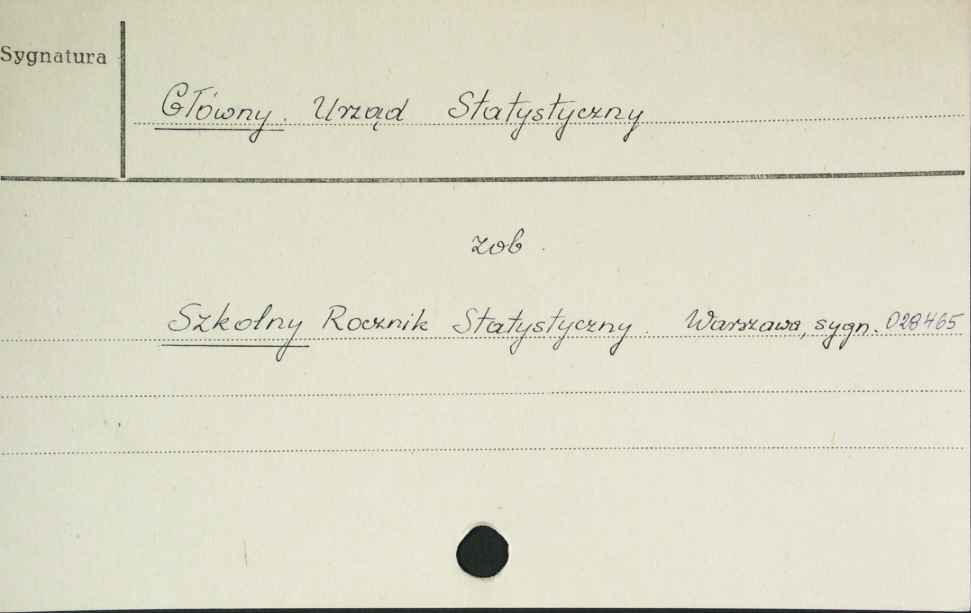 Sygnatura
Główny Urząd Statystyczny
zob.
Szkolny Rocznik Statystyczny. Warszawa, sygn. 028465